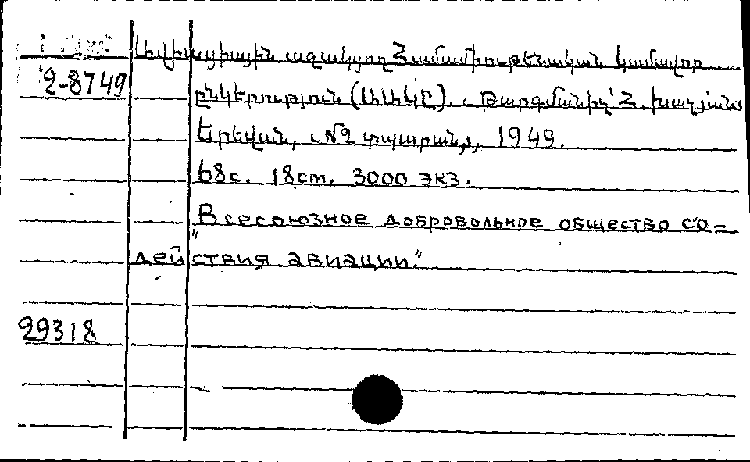 Ավիացիային աջակցող Համամիութենական կամավոր
2-8749
ընկերություն (ԱԱՀԿԸ). Թարգմանիչ՝ Հ.
Երեվան, №2 տպարան, 1949.
68с. 18см. 3000 экз.
"Всесоюзное добровольное общество со-
действия авиации."
29318